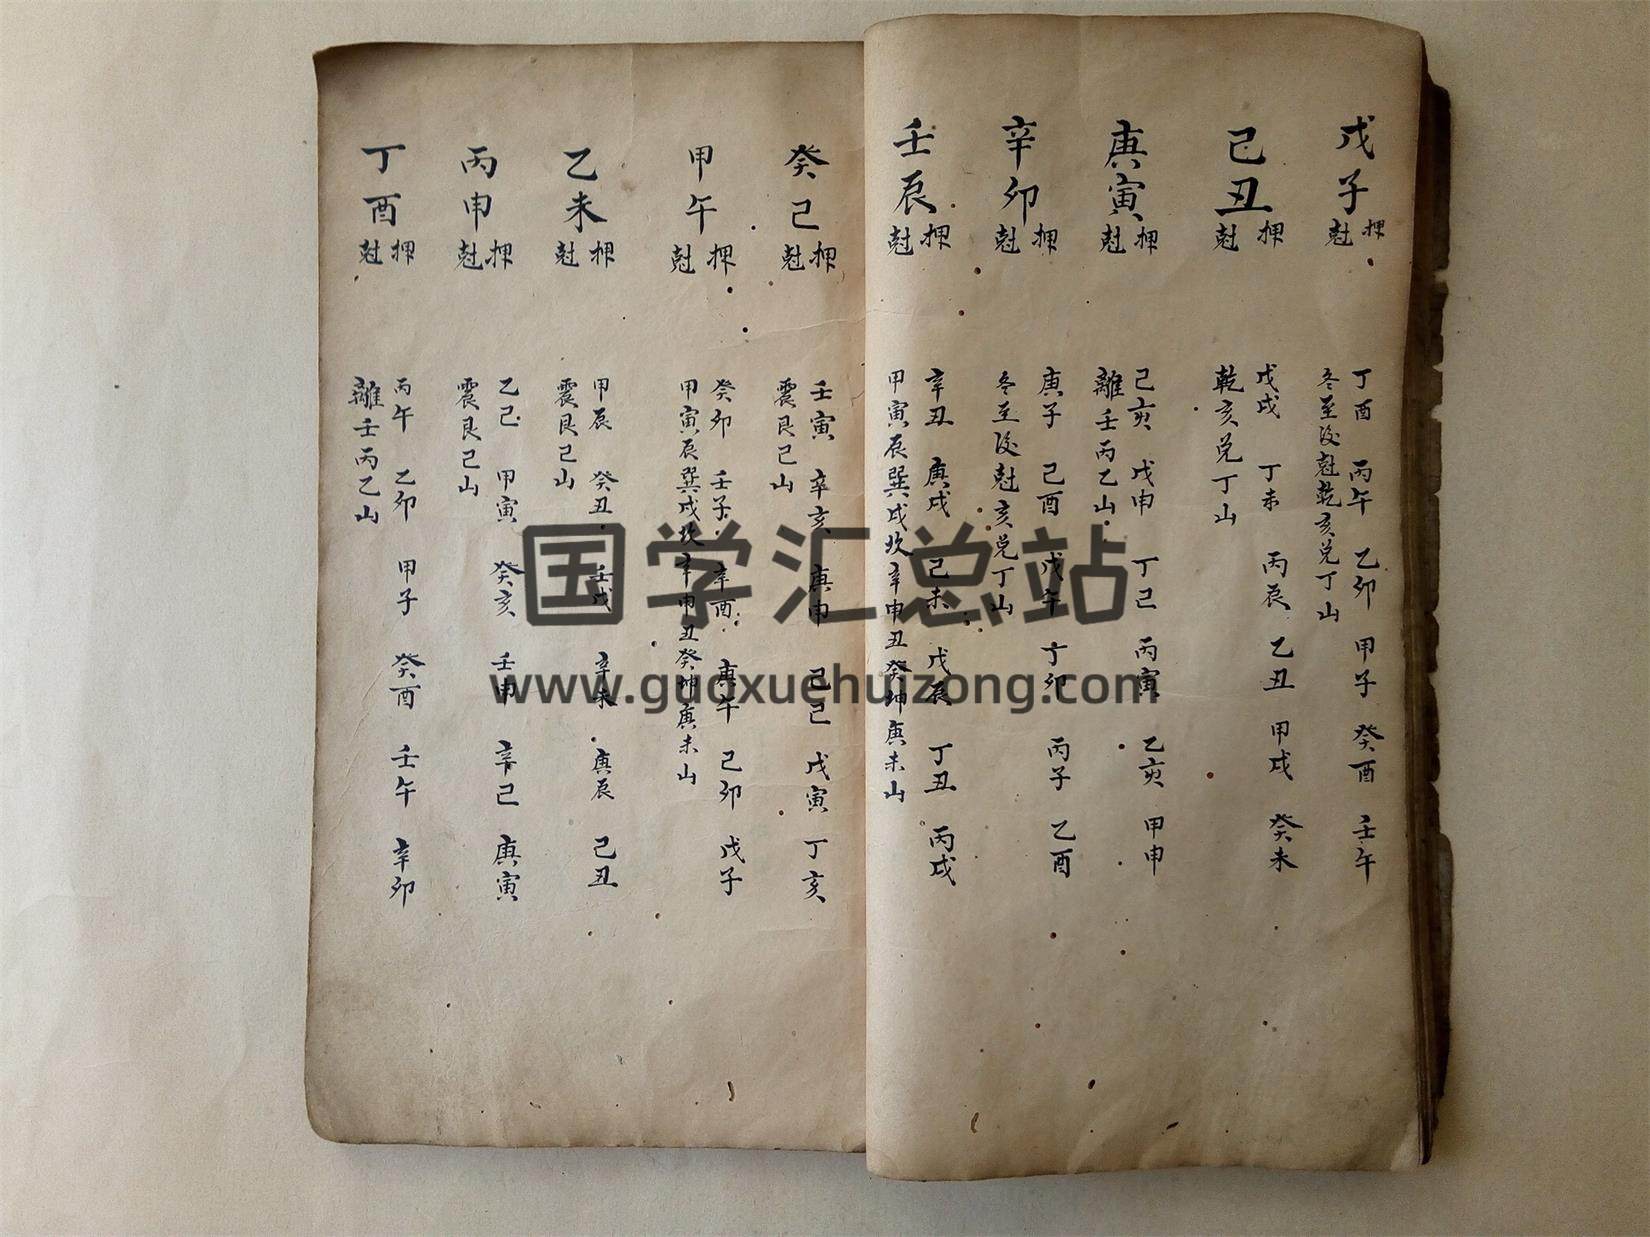 戊子
押 丁酉 丙午 乙卯 甲子 癸酉 壬午
尅 冬至後尅乾亥兌丁山
己丑
押 戊戌 丁未 丙辰 乙丑 甲戌 癸未
尅 乾亥兌丁山
庚寅
押 己亥 戊申 丁己 丙寅 乙亥 甲申
尅 離壬丙乙山
辛卯
押 庚子 己酉 戊午 丁卯 丙子 乙酉
尅 冬至後尅亥兌丁山
壬辰
押 辛丑 庚戌 己未 戊辰 丁丑 丙戌
尅 甲寅辰巽戌坎辛申丑癸坤庚未山
癸己
押 壬寅 辛亥 庚申 己己 戊寅 丁亥
尅 震艮己山
甲午
押 癸卯 壬子 辛酉 庚午 己卯 戊子
尅 甲寅辰巽戌坎辛申丑癸坤庚未山
乙未
押 甲辰 癸丑 壬戌 辛未 庚辰 己丑
尅 震艮己山
丙申
押 乙己 甲寅 癸亥 壬申 辛己 庚寅
尅 震艮己山
丁酉
押 丙午 乙卯 甲子 癸酉 壬午 辛卯
尅 離壬丙乙山
国学汇总站
www.guoxuehuizong.com